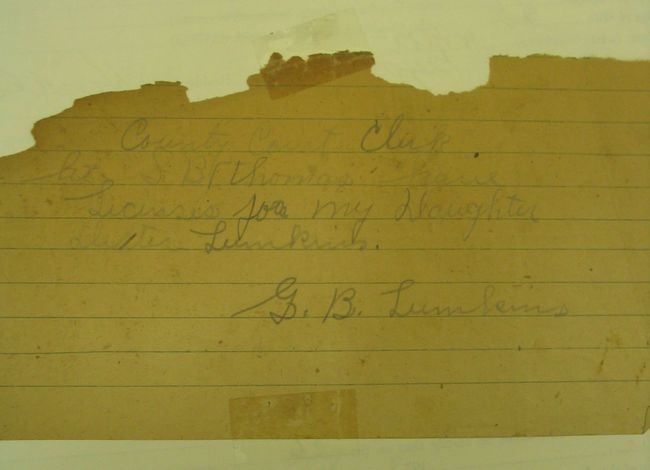 County Court Clerk
let J. B. Thomas have
Licenses for My Daughter
Lumkins.
G. B. Lumkins